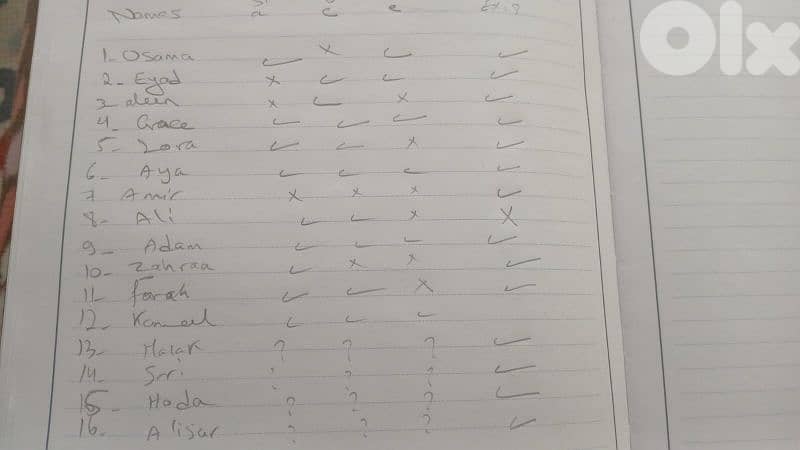 Names a c e Ex.9
olx
1- Osama ✓ x ✓ ✓
2- Eyad x ✓ ✓ ✓
3- aleen x ✓ x ✓
4- Grace ✓ ✓ ✓ ✓
5- Lora ✓ ✓ x ✓
6- Aya ✓ ✓ ✓ ✓
7 Amir x x x ✓
8- Ali ✓ ✓ x X
9- Adam ✓ ✓ ✓ ✓
10- Zahraa ✓ x x ✓
11- Farah ✓ ✓ x ✓
12- ✓ ✓ ✓
13- Malak ? ? ? ✓
14- ? ? ? ✓
15- Hoda ? ? ? ✓
16- Alisar ? ? ? ✓